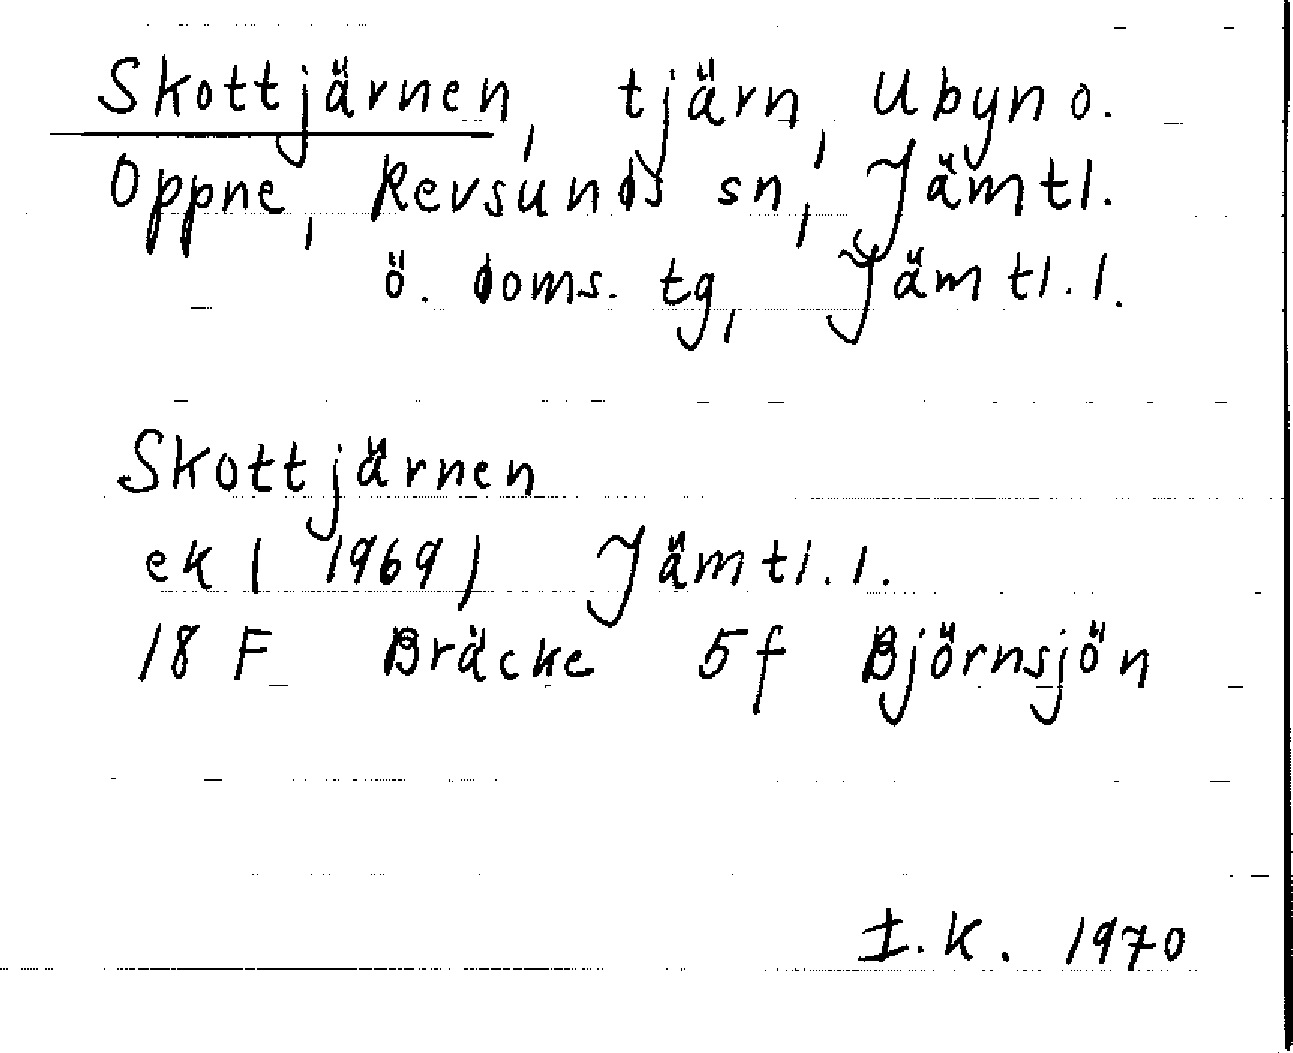 Skottjärnen, tjärn, Ubyn o.
Oppne, Revsunds sn, Jämtl.
ö. doms. tg, Jämtl. l.
Skottjärnen
ek (1969) Jämtl. l.
18 F Bräcke 5f Björnsjön
I. K. 1970